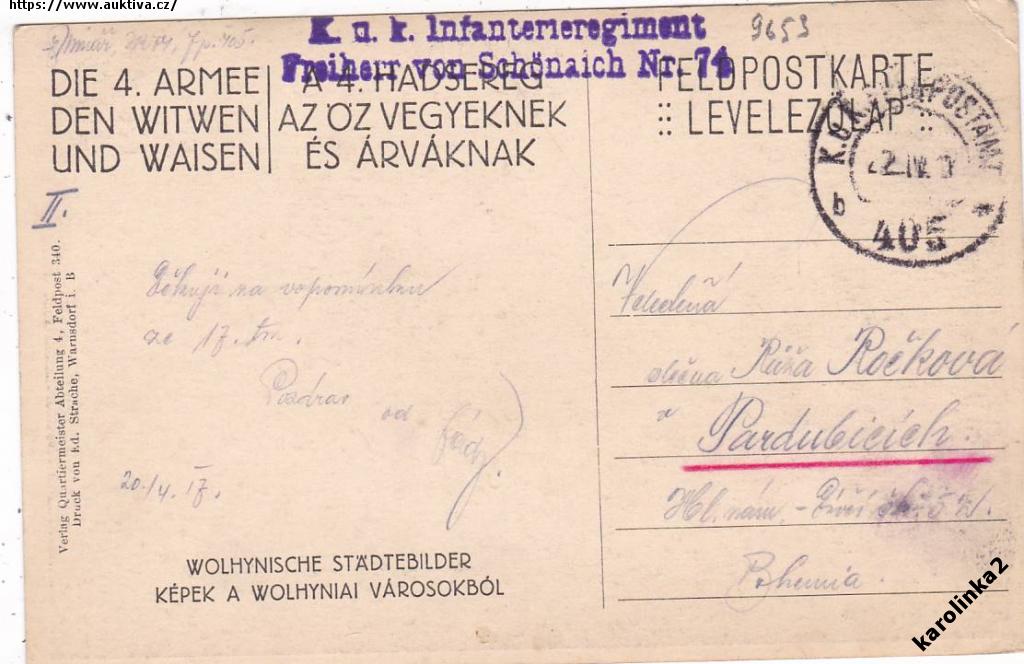 https://www.auktiva.cz/
K. u. k. Infanterieregiment
Freiherr von Schönaich Nr. 74
9653
DIE 4. ARMEE
DEN WITWEN
UND WAISEN
A 4. HADSEREG
AZ ÖZVEGYEKNEK
ÉS ÁRVÁKNAK
FELDPOSTKARTE
:: LEVELEZŐLAP ::
K.U.K. FELDPOSTAMT
b
405
II.
Verlag Quartiermeister Abteilung 4, Feldpost 340.
Druck von Ed. Strache, Warnsdorf i. B
Děkuji za vzpomínku
ze 17. tm.
Pozdrav od
20./4. 17.
Velectěná
slečna Růža Ročková
v
Pardubicích.
Hl. nám. - Dívčí
Bohemia.
WOLHYNISCHE STÄDTEBILDER
KÉPEK A WOLHYNIAI VÁROSOKBÓL
karolinka2